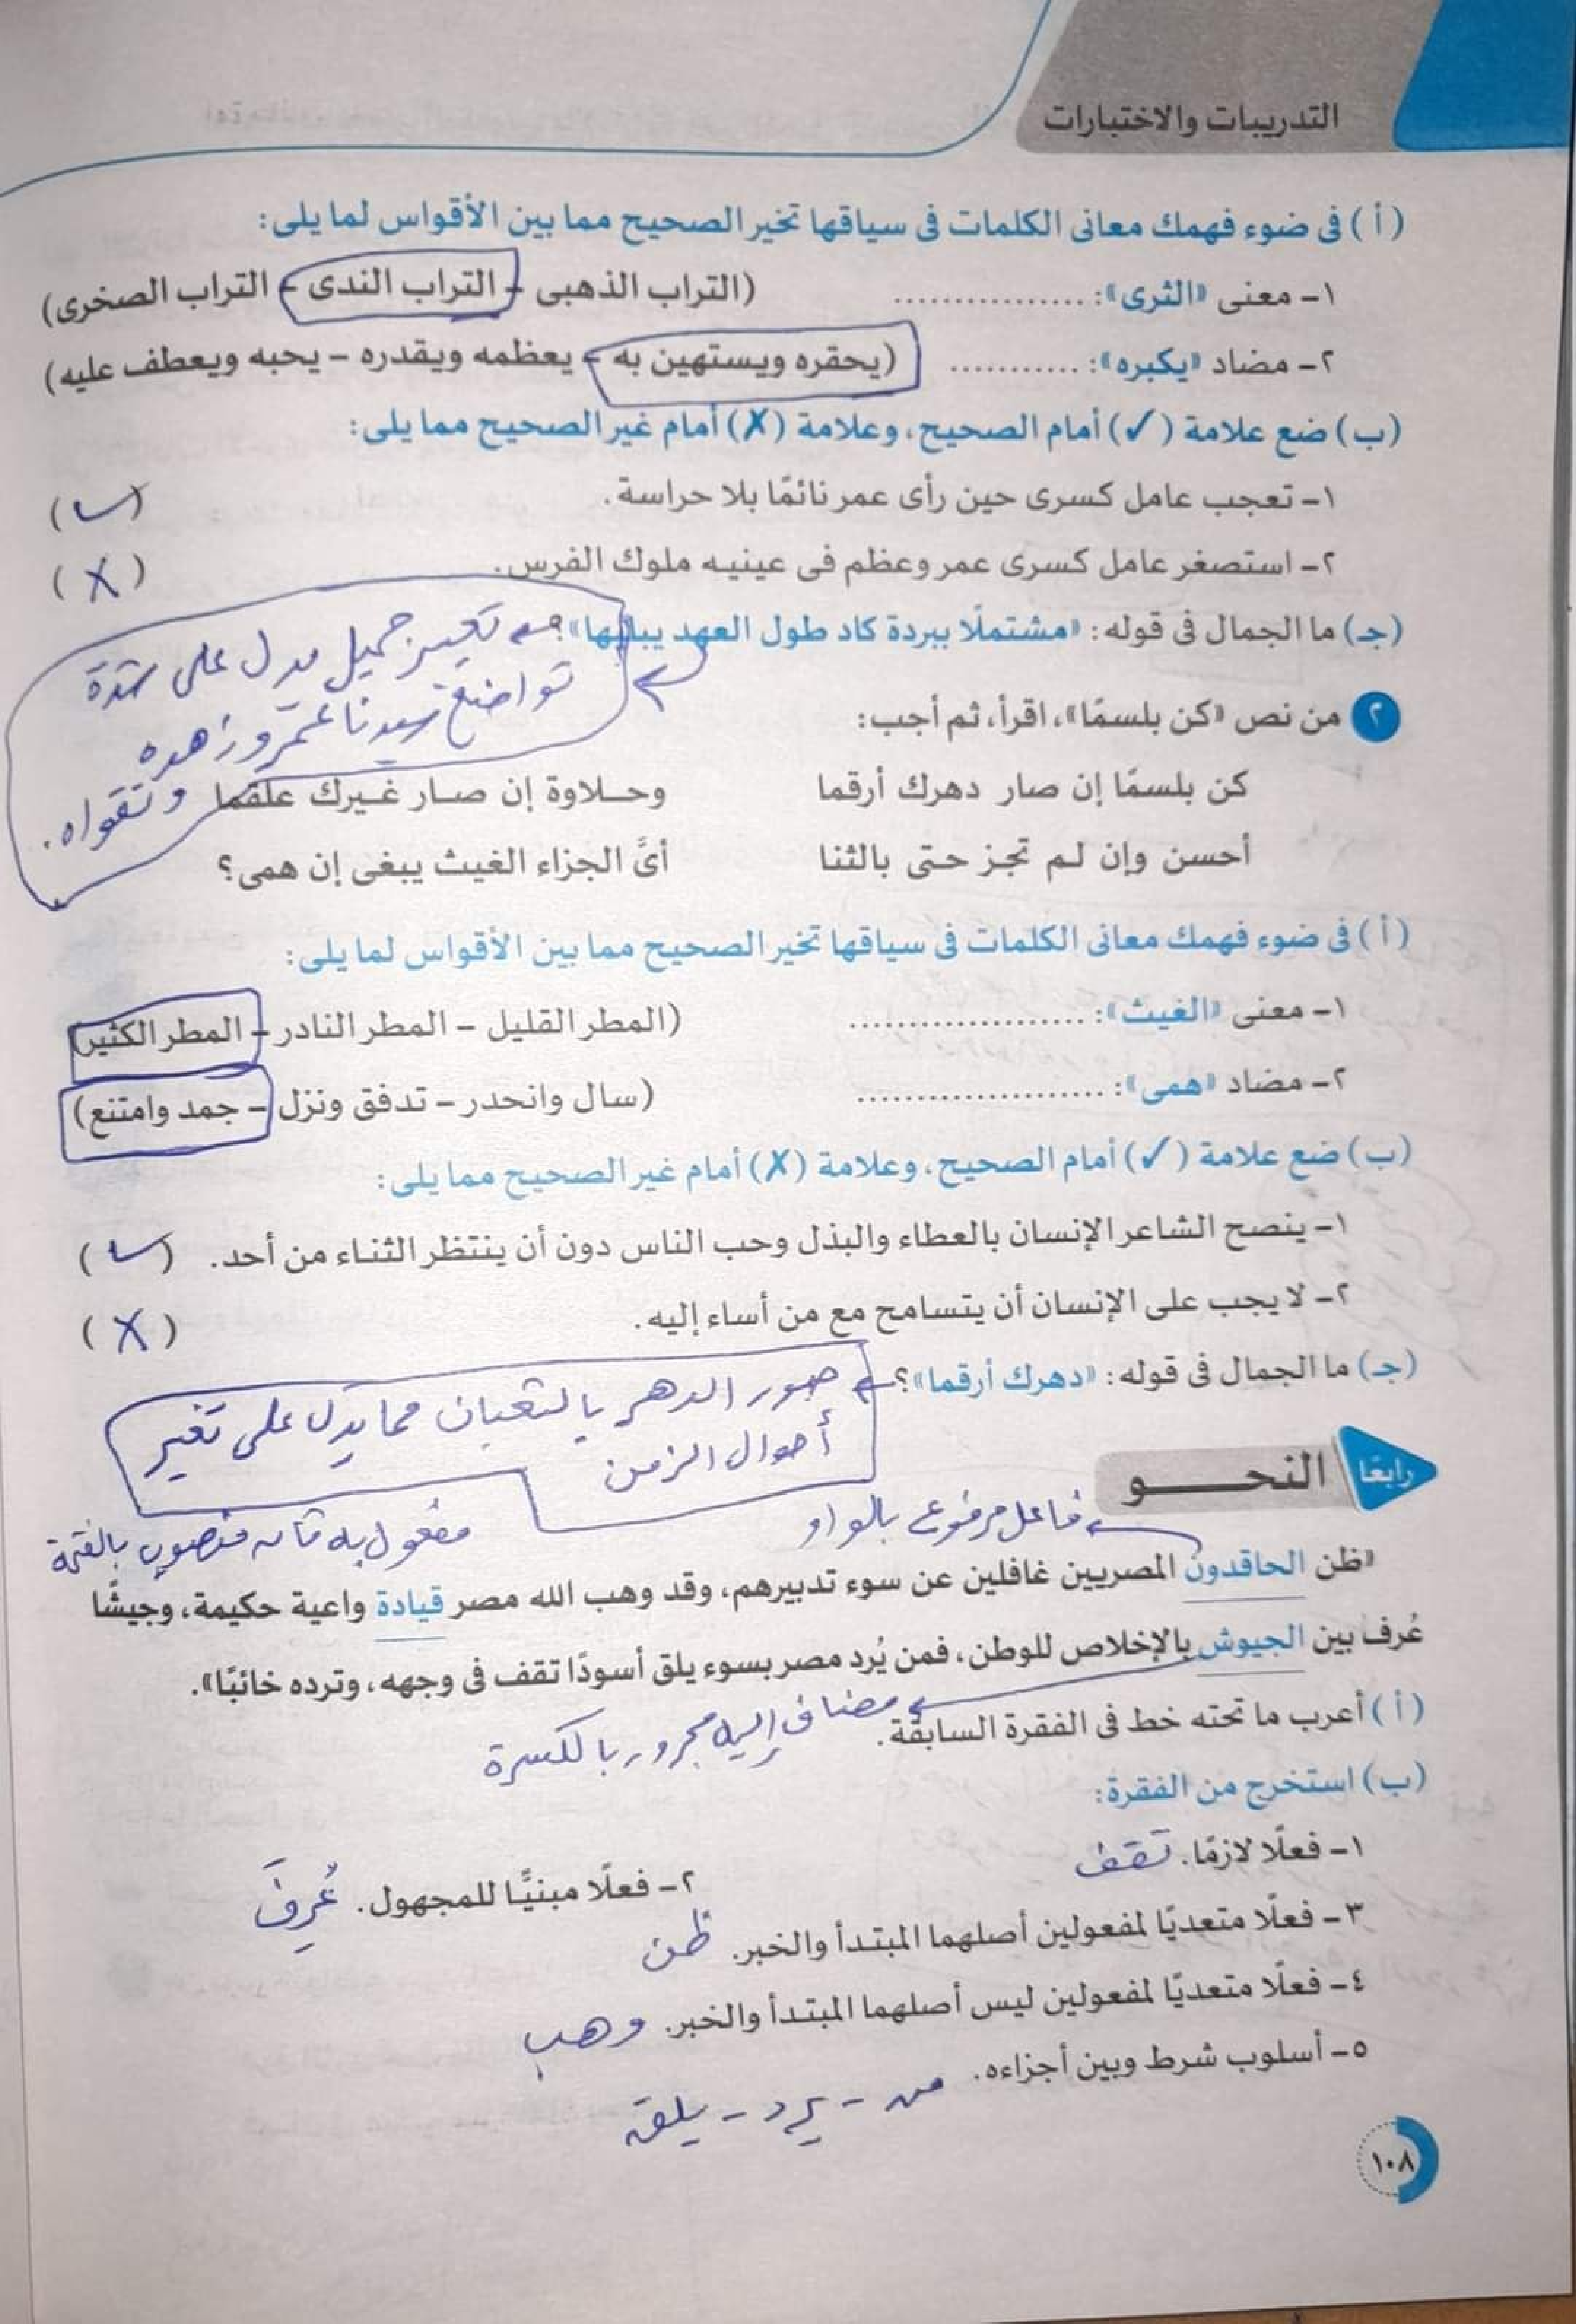 التدريبات والاختبارات
(أ) فى ضوء فهمك معانى الكلمات فى سياقها تخير الصحيح مما بين الأقواس لما يلى:
١- معنى «الثرى»: ................ (التراب الذهبى - التراب الندى - التراب الصخرى)
٢- مضاد «يكبره»: ............ (يحقره ويستهين به - يعظمه ويقدره - يحبه ويعطف عليه)
(ب) ضع علامة (✓) أمام الصحيح، وعلامة (✗) أمام غير الصحيح مما يلى:
١- تعجب عامل كسرى حين رأى عمر نائمًا بلا حراسة. (✓)
٢- استصغر عامل كسرى عمر وعظم فى عينيه ملوك الفرس. (✗)
(جـ) ما الجمال فى قوله: «مشتملًا ببردة كاد طول العهد يبليها»؟
تعبير جميل يدل على شدة
تواضع سيدنا عمر وزهده
وتقواه.
٢ من نص «كن بلسمًا»، اقرأ، ثم أجب:
كن بلسمًا إن صار دهرك أرقما وحلاوة إن صار غيرك علقما
أحسن وإن لم تجز حتى بالثنا أىَّ الجزاء الغيث يبغى إن همى؟
(أ) فى ضوء فهمك معانى الكلمات فى سياقها تخير الصحيح مما بين الأقواس لما يلى:
١- معنى «الغيث»: .................... (المطر القليل - المطر النادر - المطر الكثير)
٢- مضاد «همى»: ..................... (سال وانحدر - تدفق ونزل - جمد وامتنع)
(ب) ضع علامة (✓) أمام الصحيح، وعلامة (✗) أمام غير الصحيح مما يلى:
١- ينصح الشاعر الإنسان بالعطاء والبذل وحب الناس دون أن ينتظر الثناء من أحد. (✓)
٢- لا يجب على الإنسان أن يتسامح مع من أساء إليه. (✗)
(جـ) ما الجمال فى قوله: «دهرك أرقما»؟ صور الدهر بالثعبان مما يدل على تغير
أحوال الزمن
رابعًا النحـو
فاعل مرفوع بالواو
مفعول به ثان منصوب بالفتحة
«ظن الحاقدون المصريين غافلين عن سوء تدبيرهم، وقد وهب الله مصر قيادة واعية حكيمة، وجيشًا
عُرف بين الجيوش بالإخلاص للوطن، فمن يُرد مصر بسوء يلق أسودًا تقف فى وجهه، وترده خائبًا».
(أ) أعرب ما تحته خط فى الفقرة السابقة. مضاف إليه مجرور بالكسرة
(ب) استخرج من الفقرة:
١- فعلًا لازمًا. تقف ٢- فعلًا مبنيًّا للمجهول. عُرِفَ
٣- فعلًا متعديًا لمفعولين أصلهما المبتدأ والخبر. ظن
٤- فعلًا متعديًا لمفعولين ليس أصلهما المبتدأ والخبر. وهب
٥- أسلوب شرط وبين أجزاءه. من - يرد - يلق
١٠٨